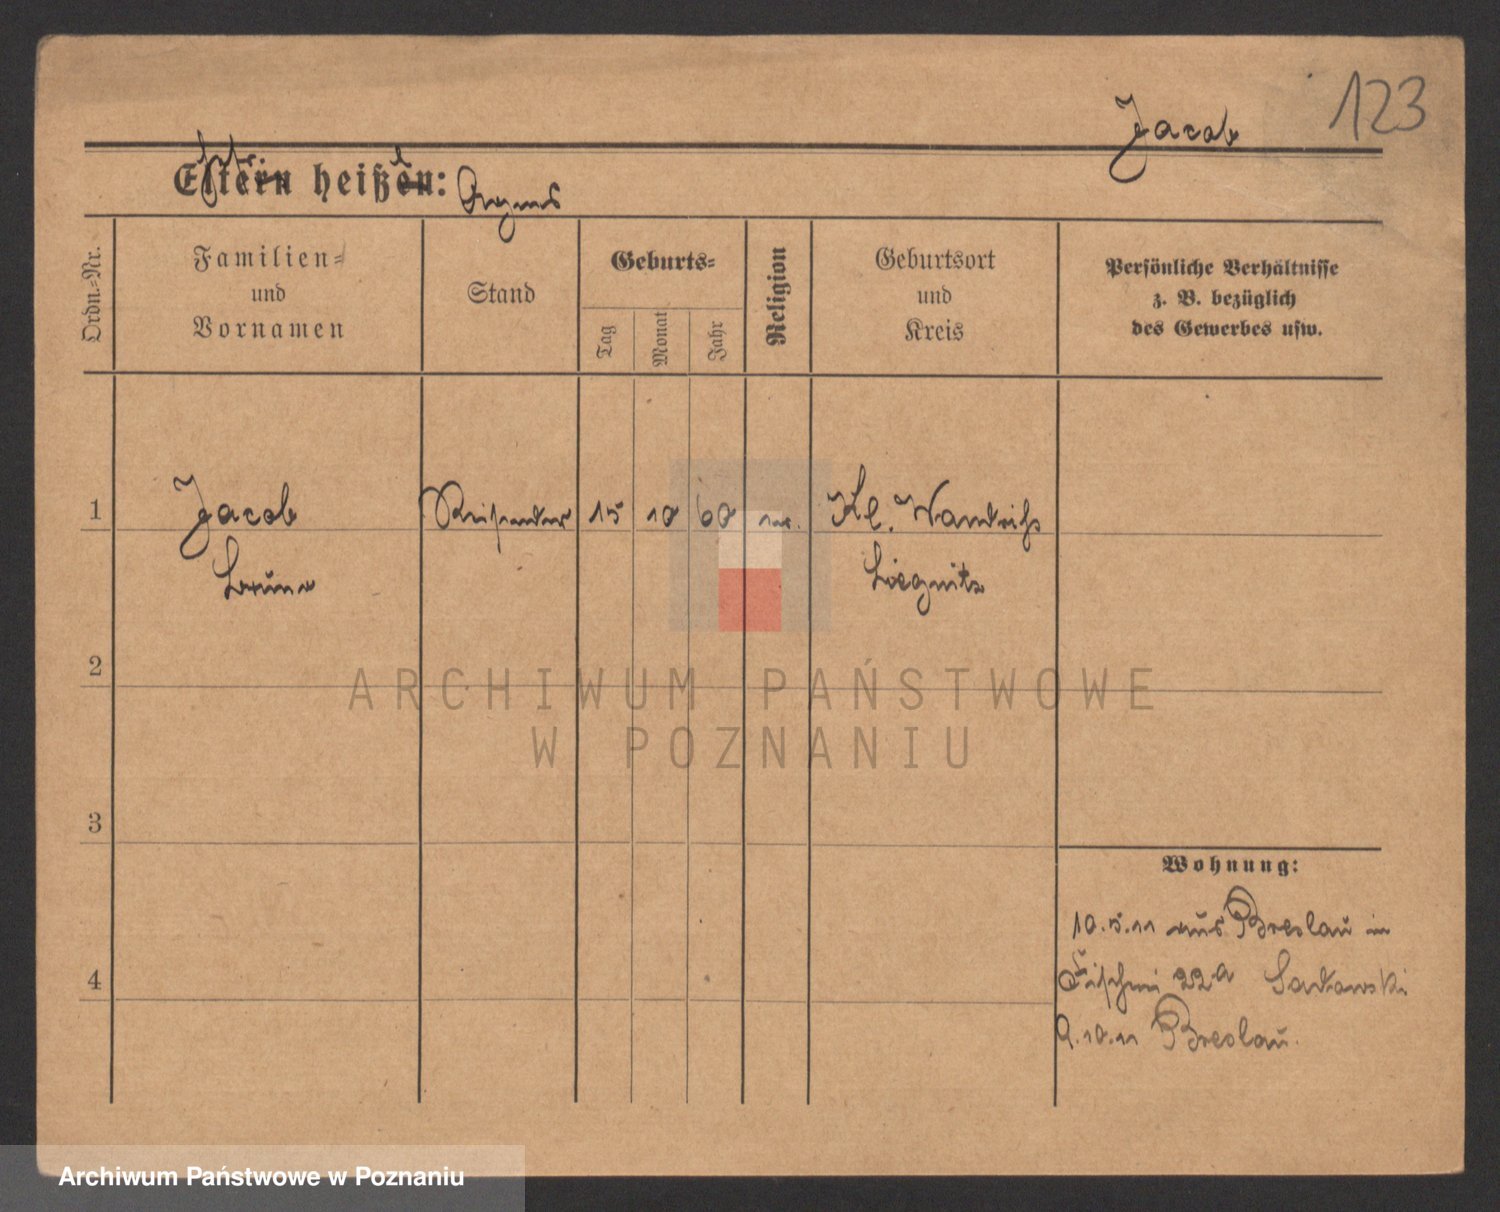 123
Jacob
Eltern heißen: Agnes
Ordn.-Nr.
Familien-
und
Vornamen
Stand
Geburts-
Tag
Monat
Jahr
Religion
Geburtsort
und
Kreis
Persönliche Verhältnisse
z. B. bezüglich
des Gewerbes usw.
1 Jacob Reisender 15 10 60 Kl. Wandriß
Bruno Liegnitz
2
ARCHIWUM PAŃSTWOWE
W POZNANIU
3
Wohnung:
10.5.11 aus Breslau in
4
Fischerei 22a Sadowski
9.10.11 Breslau.
Archiwum Państwowe w Poznaniu